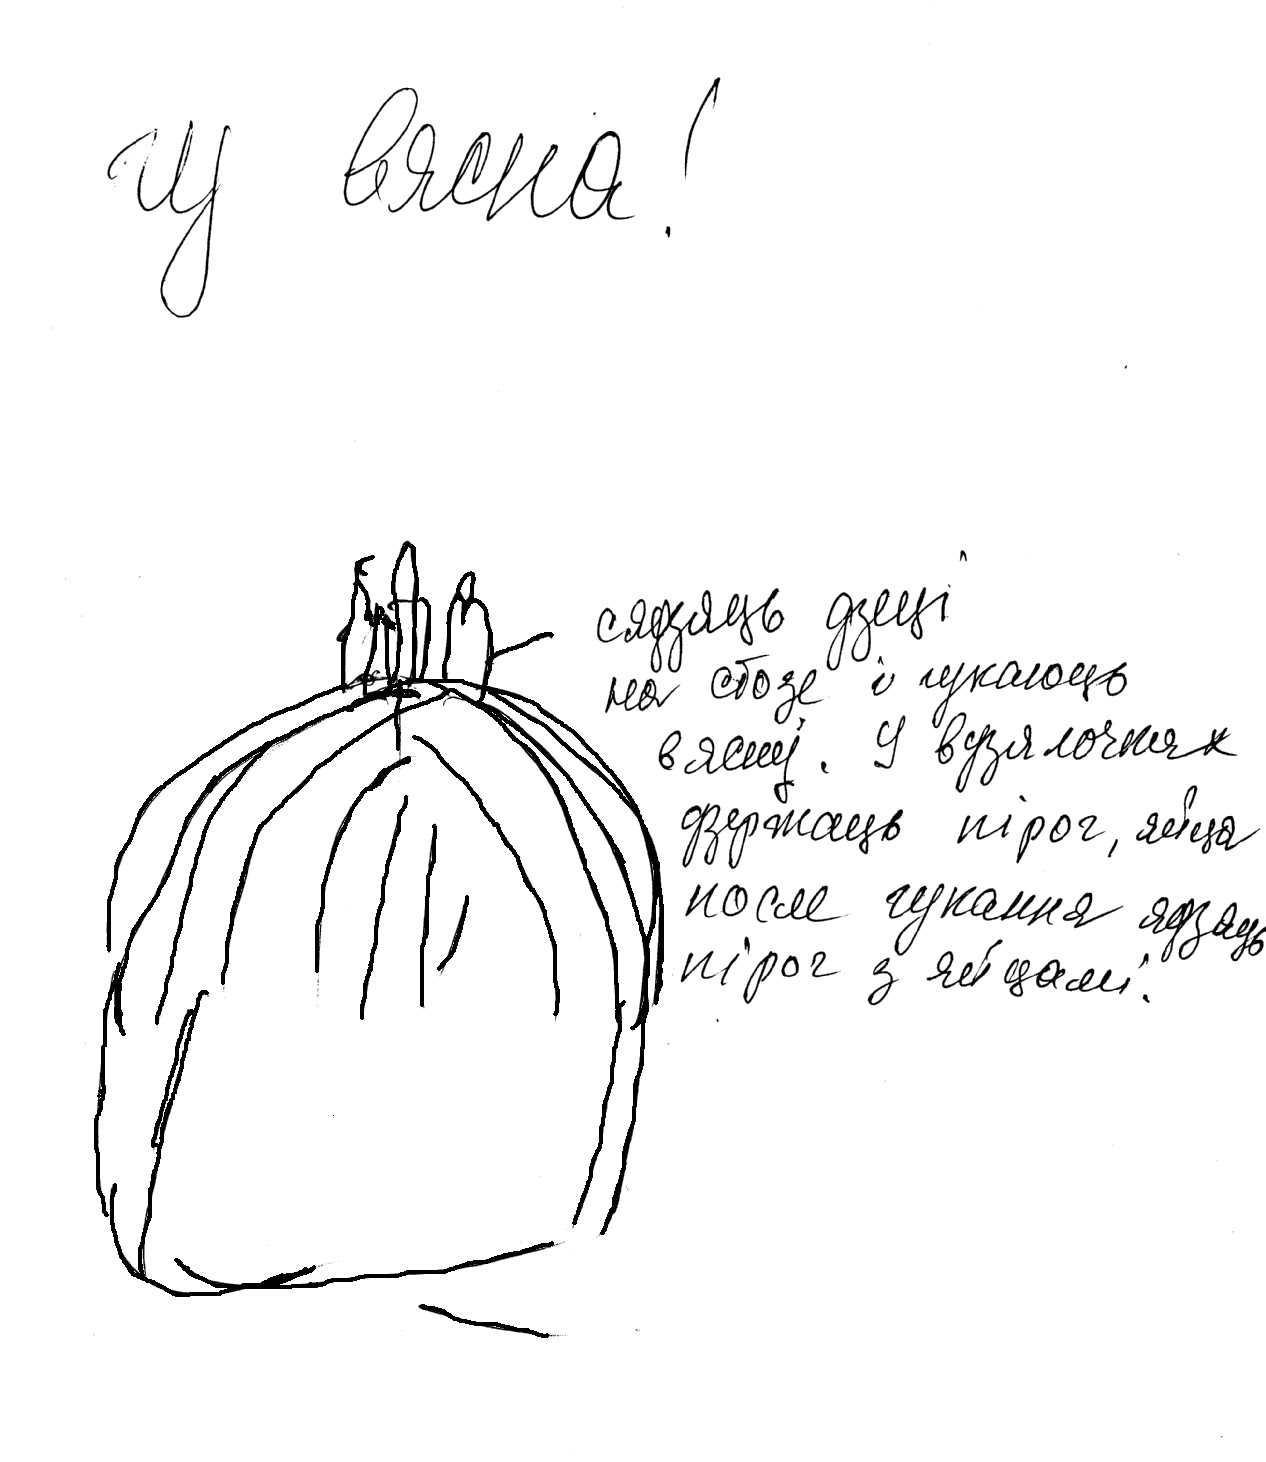 Гу вясна!
сядзяць дзеці
на стозе і гукаюць
вясну. У вузялочках
дзержаць пірог, яйца
после гукання ядзяць
пірог з яйцамі.